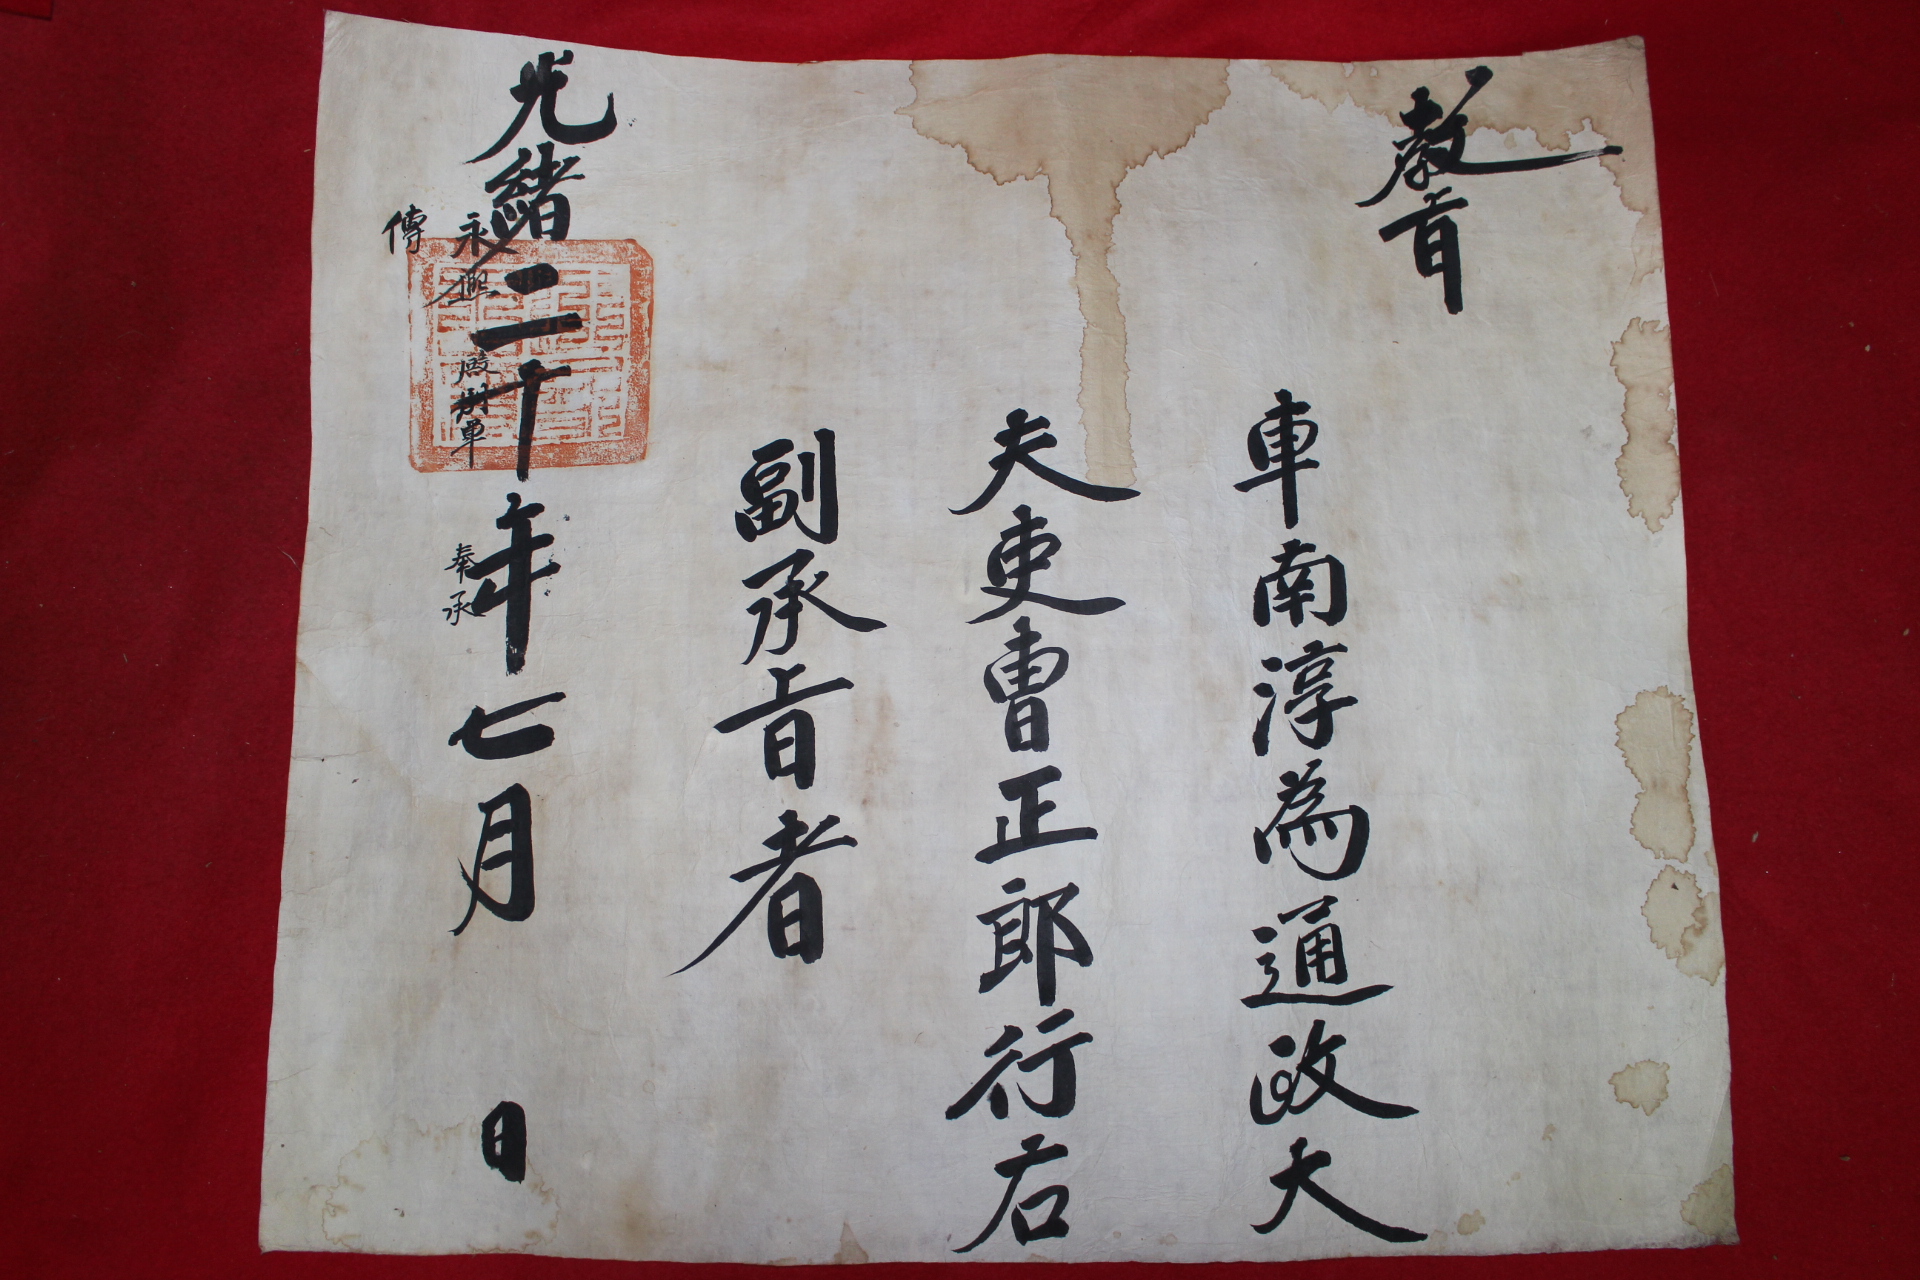 教旨
車南淳為通政大
夫吏曹正郎行右
副承旨者
光緒二十年七月 日
永興殿別單奉承
傳